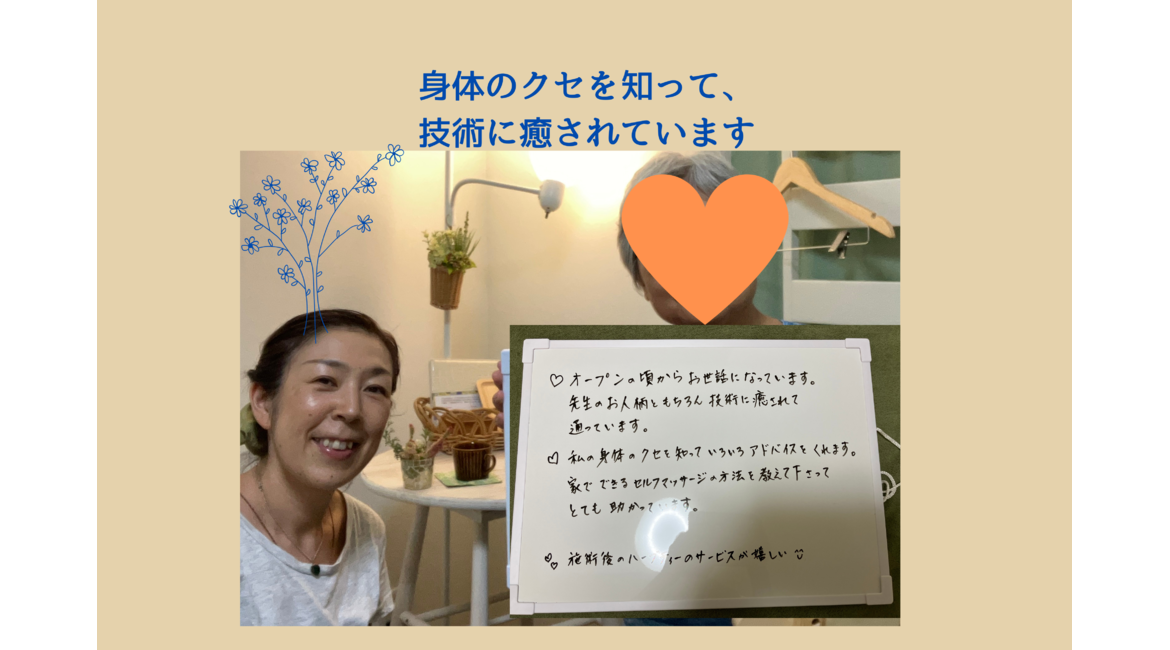 身体のクセを知って、
技術に癒されています
♡ オープンの頃からお世話になっています。
先生のお人柄ともちろん技術に癒されて
通っています。
♡ 私の身体のクセを知っていろいろアドバイスをくれます。
家でできるセルフマッサージの方法を教えて下さって
とても助かっています。
施術後のハーブティーのサービスが嬉しい